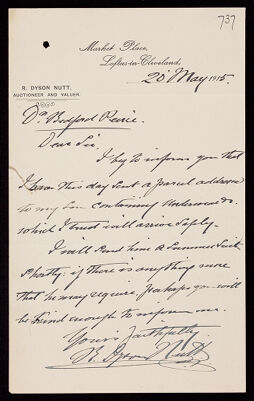 737
Market Place,
Loftus-in-Cleveland,
20 May 1915.
R. DYSON NUTT,
AUCTIONEER AND VALUER.
Dr Bedford Pierce.
Dear Sir.
I beg to inform you that
I have this day sent a parcel address
to my Son containing Underwear &c.
which I trust will arrive safely.
I will send him a Summer Suit
Shortly: if there is anything more
that he may require, perhaps you will
be kind enough to inform me.
Yours faithfully
R. Dyson Nutt